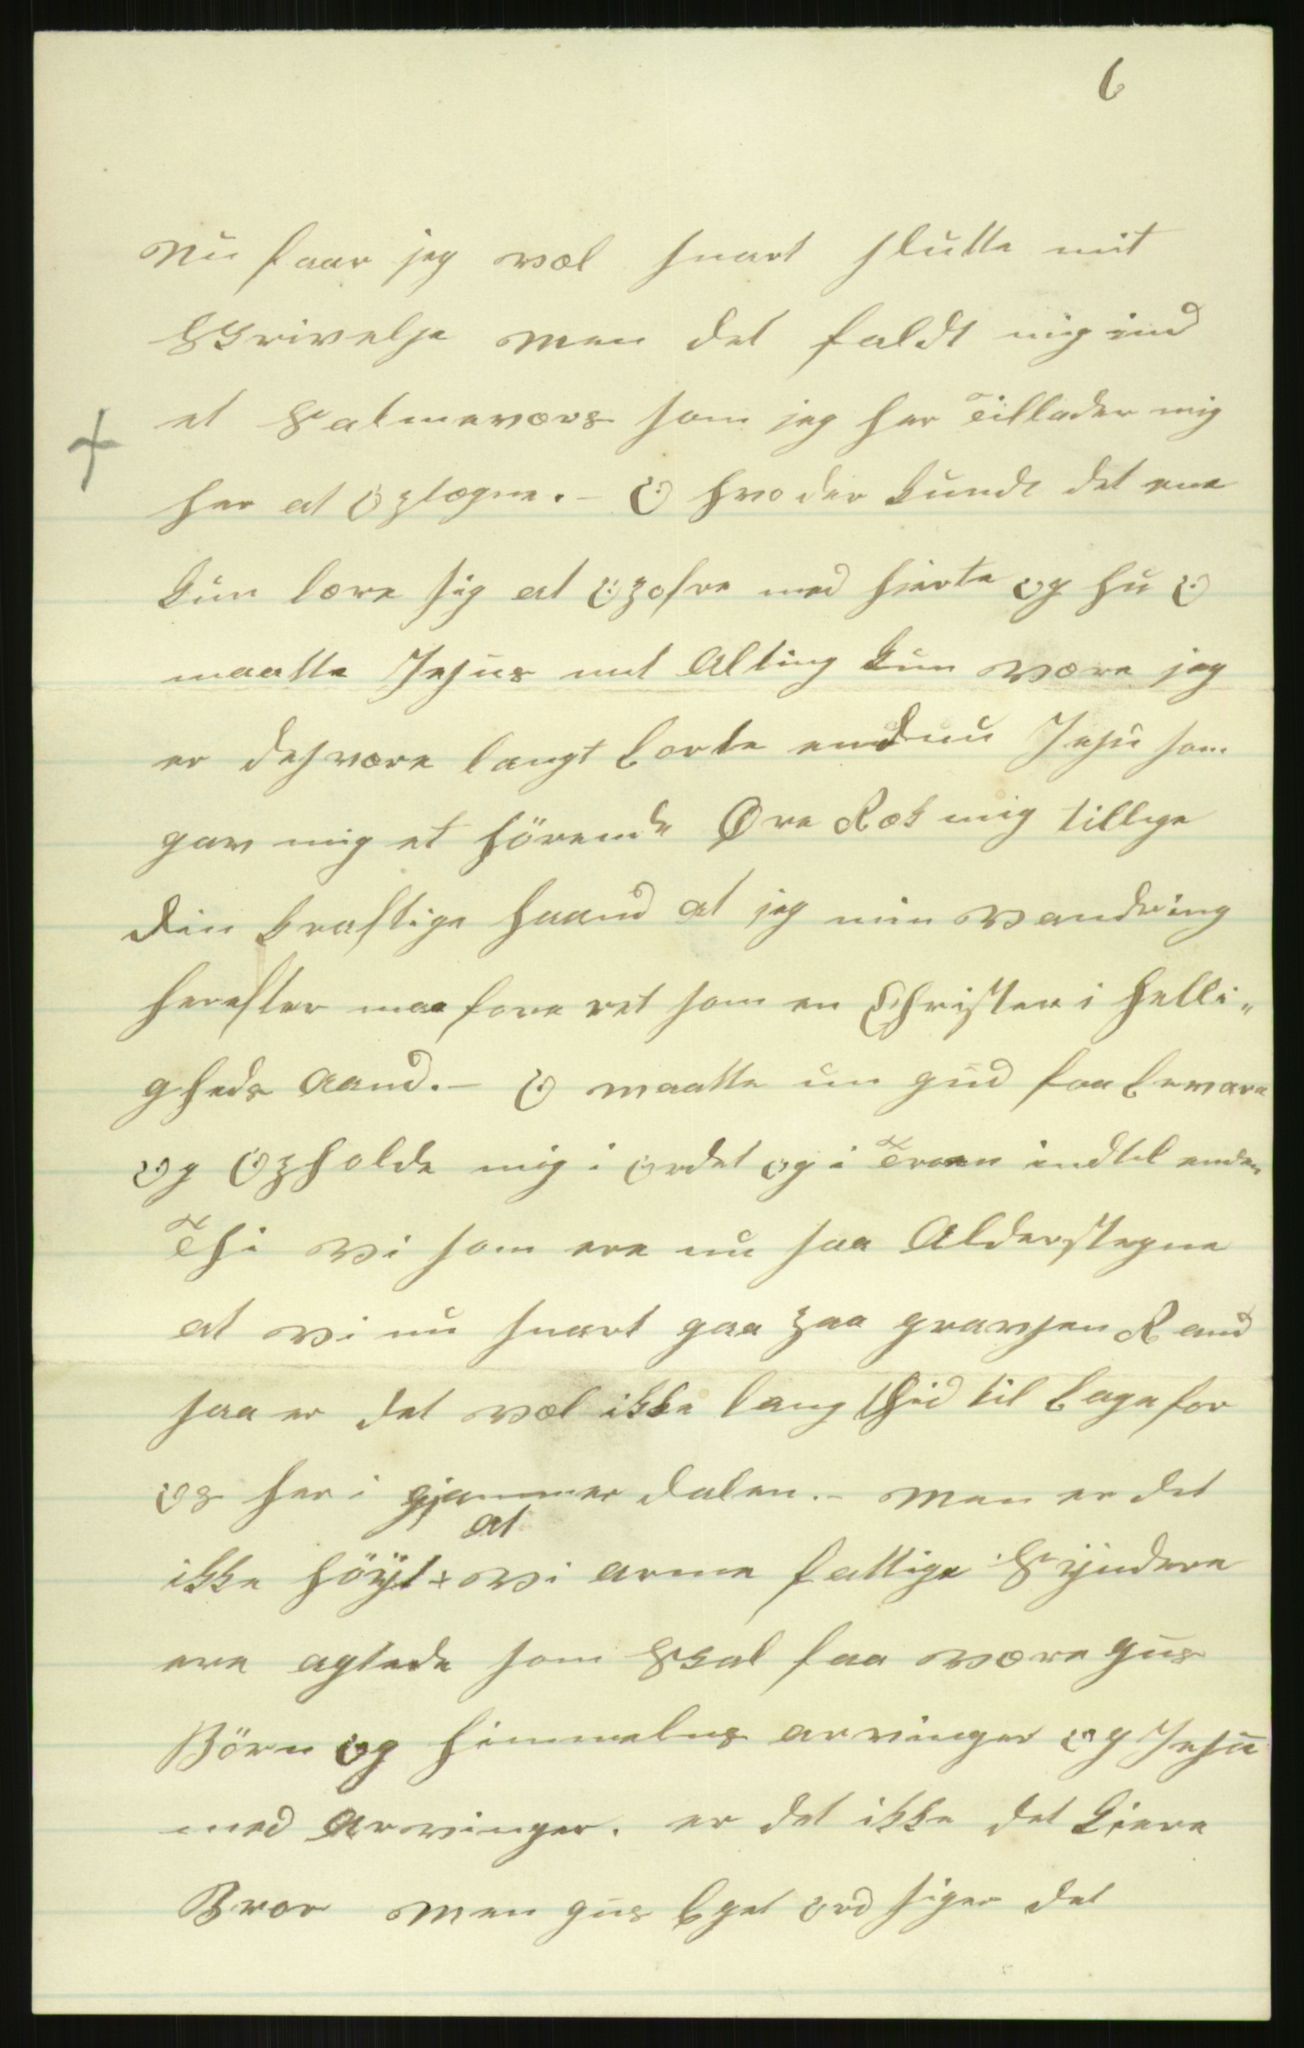 6
Nu faar jeg væl snart slutte mit
Skrivelse men det faldt mig ind
et Salmeværs som jeg her Tillader mig
her at Oplægne. – O hvo der kunde det ene
kun lære sig at Opofre med hjerte og hu O
maatte Jesus mit Alting kun være jeg
er desværre langt borte endnu Jesu som
gav mig et hörende Øre Ræk mig tillige
din kraftige haand at jeg min vandring
herefter maa føre ret som en Christen i helli-
gheds Aand. – O maatte nu gud faa bevare
og Opholde mig i ordet og i Troen indtil enden
Thi vi som ere nu saa Alderstegne
at vi nu snart gaa paa gravsen Rand
saa er det væl ikke lang thid til bage for
os her i gjammer dalen. – Men er det
at
ikke höÿt + vi arme fattige Sÿndere
ere agtede som Skal faa være gus
Börn og himmelns arvinger og Jesu
med Arvinger. er det ikke det kiere
Bror Men gus Eget ord siger det
+